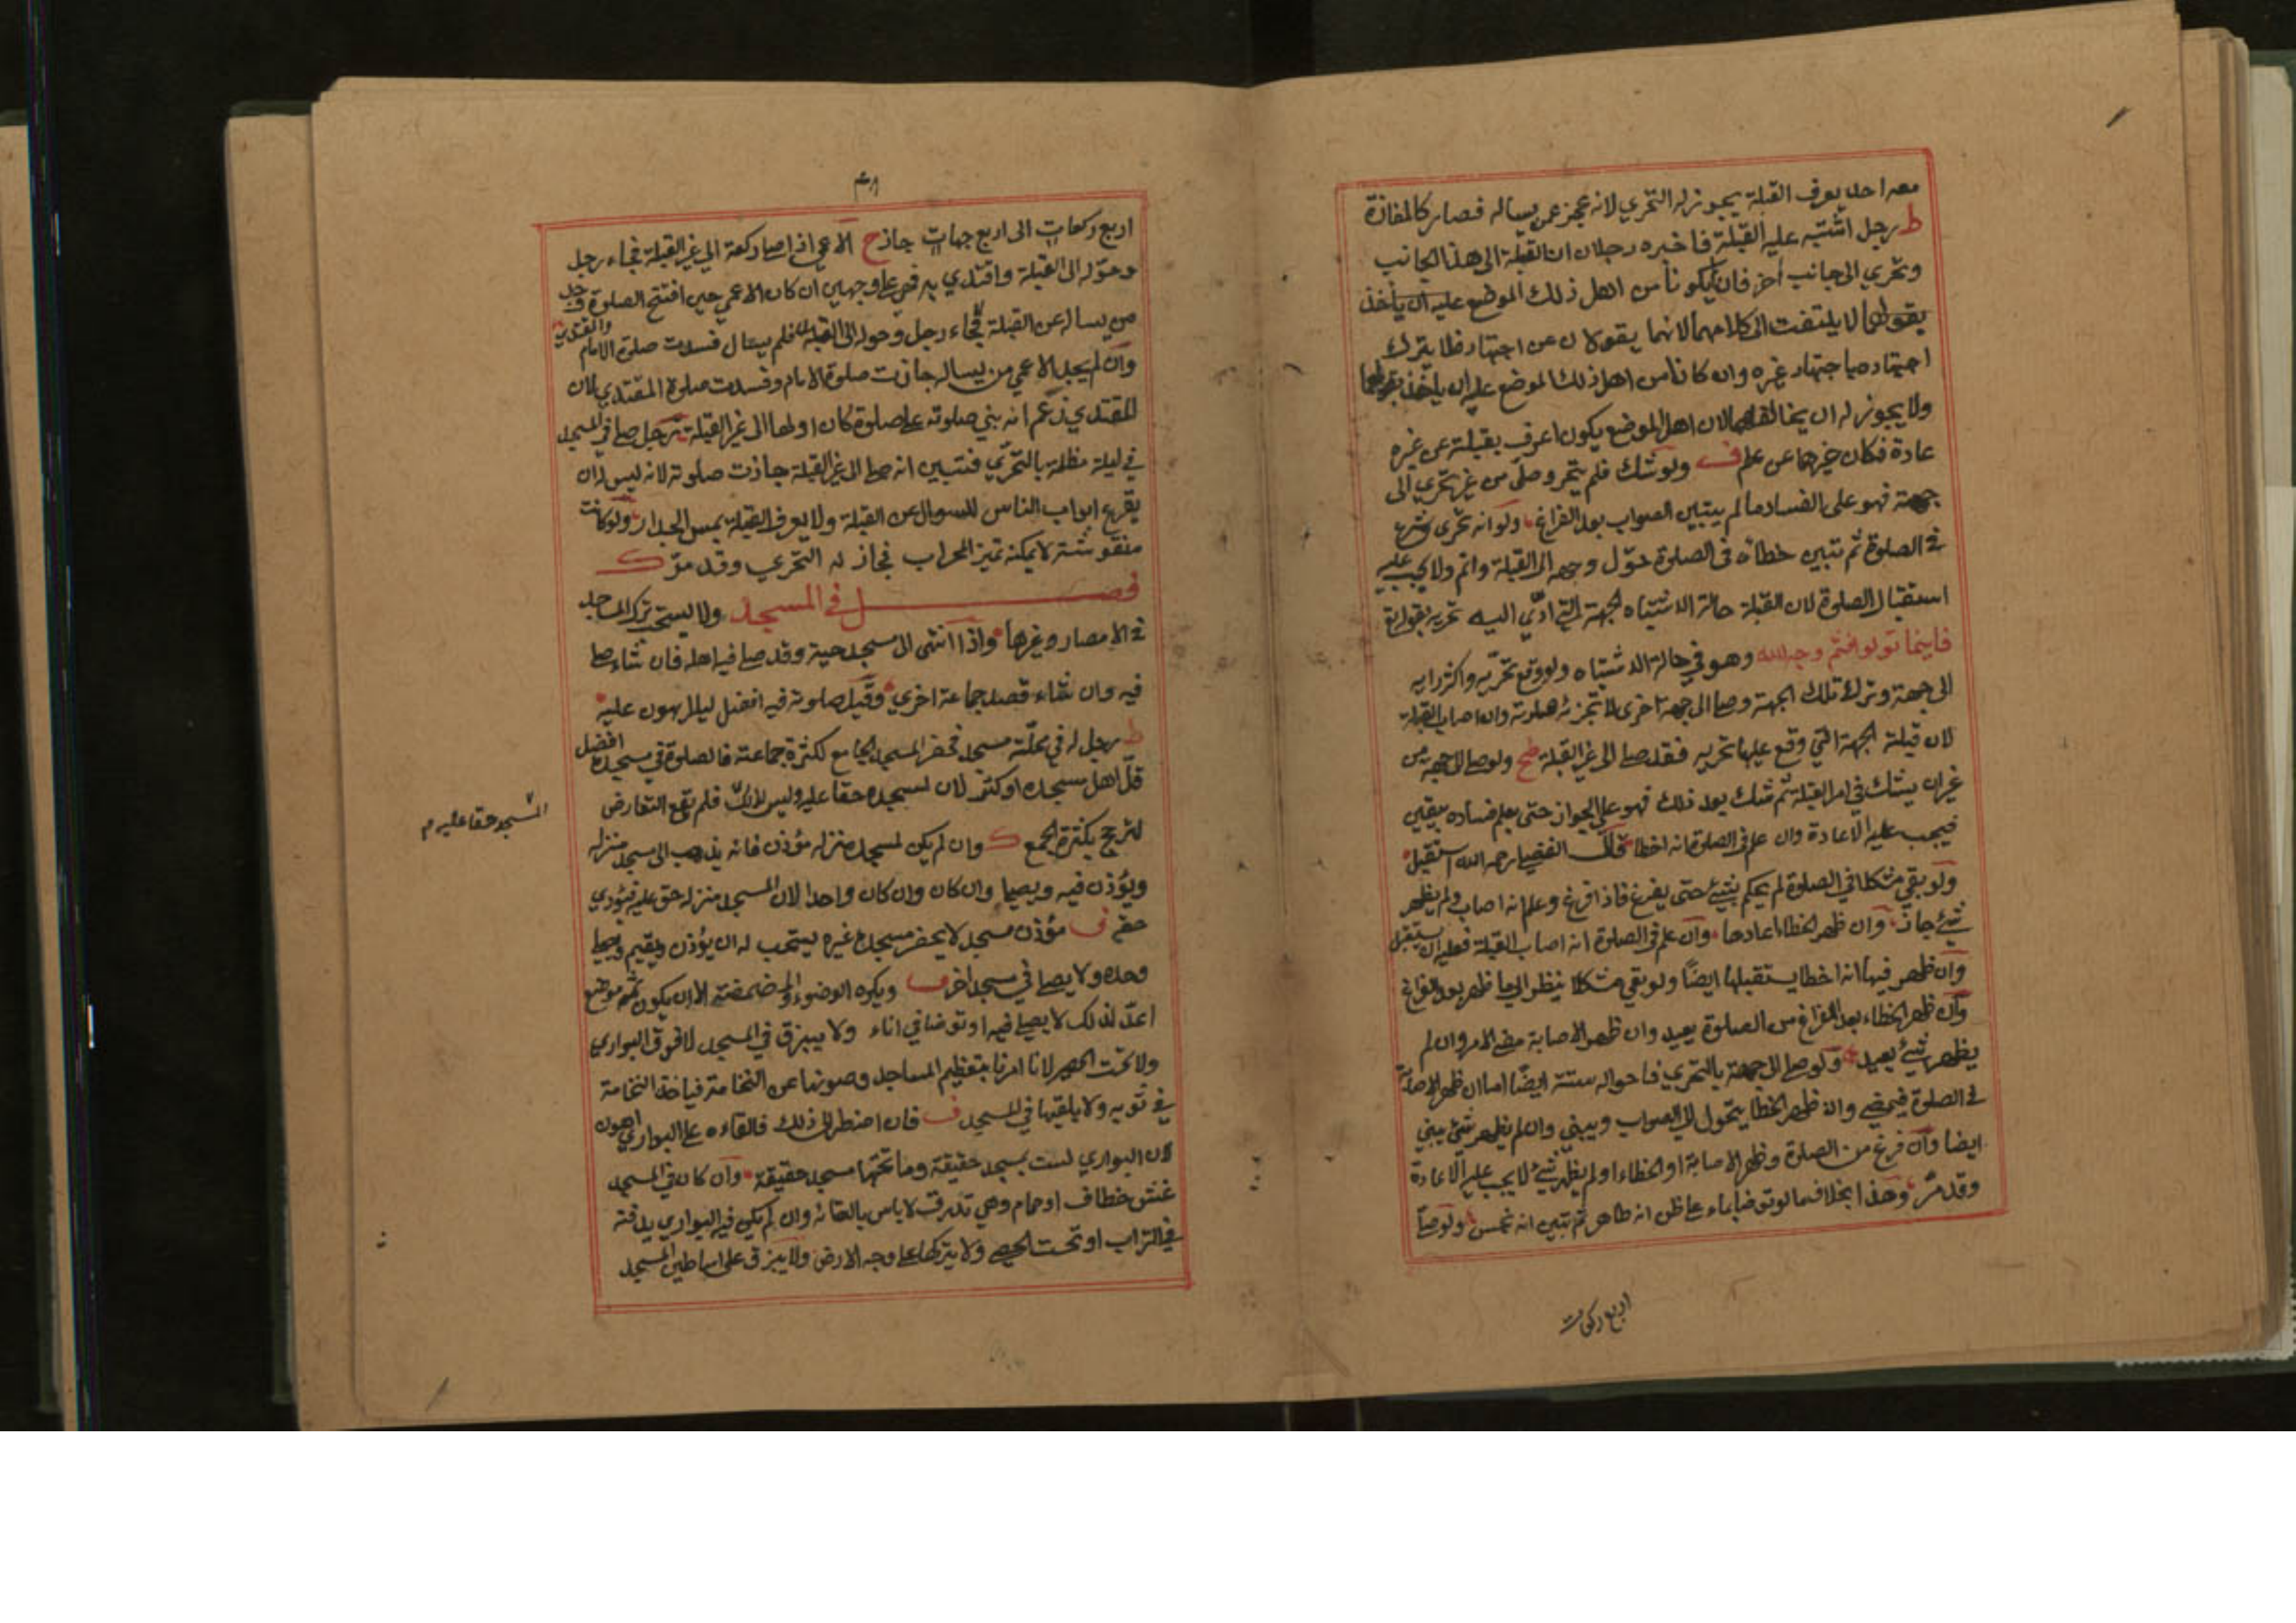 معه احد يعرف القبلة يجوز له التحري لانه عجز عمن يساله فصار كالمفازة
ط رجل اشتبه عليه القبلة فاخبره رجلان ان القبلة الى هذا الجانب
وتحري الى جانب آخر فان لم يكونا من اهل ذلك الموضع عليه ان ياخذ
بقولهما لا يلتفت الى كلامهما لانهما يقولان عن اجتهاد فلا يترك
اجتهاده باجتهاد غيره وان كانا من اهل ذلك الموضع عليه ان ياخذ بقولهما
ولا يجوز له ان يخالفهما لان اهل الموضع يكون اعرف بقبلته عن غيره
عادة فكان خبرهما عن علم ف ولو شك فلم يتحر وصلى من غير تحري الى
جهة فهو على الفساد ما لم يتبين الصواب بعد الفراغ ولو انه تحرى وشرع
في الصلوة ثم تبين خطاه في الصلوة حوّل وجهه الى القبلة واتم ولا يجب عليه
استقبال الصلوة لان القبلة حالة الاشتباه الجهة التي ادّي اليه تحريه بقوله تع
فاينما تولوا فثم وجه الله وهو في حالة الاشتباه ولو وقع تحرّيه واكثر رايه
الى جهة وترك تلك الجهة وصلى الى جهة اخرى لا تجزئه صلوته وان اصاب القبلة
لان قبلته الجهة التي وقع عليها تحريه فقد صلى الى غير القبلة طح ولو صلى الى جهة من
غير ان يشك في امر القبلة ثم شك بعد ذلك فهو على الجواز حتى يعلم فساده بيقين
فيجب عليه الاعادة وان علم في الصلوة انه اخطا قال الفضلي رحمه الله استقبل
ولو بقي مشكلا في الصلوة لم يحكم بشيء حتى يفرغ فاذا فرغ وعلم انه اصاب ولم يظهر
شيء جاز وان ظهر الخطا اعادها وان علم في الصلوة انه اصاب القبلة فعليه ان يستقبل
وان ظهر فيها انه اخطا يستقبلها ايضًا ولو بقي مشكلا ينظر الى ما ظهر بعد الفراغ
وان ظهر الخطاء بعد الفراغ من الصلوة يعيد وان ظهر الاصابة مضى الامر وان لم
يظهر شيء يعيد ولو صلى الى جهة بالتحري فاحواله ستة ايضًا اما ان ظهر الاصابة
في الصلوة فيمضي وان ظهر الخطا يتحول الى الصواب ويبني وان لم يظهر شيء يبني
ايضا وان فرغ من الصلوة وظهر الاصابة او الخطاء او لم يظهر شيء لا يجب عليه الاعادة
وقد مرّ وهذا بخلاف ما لو توضا بماء على ظن انه طاهر ثم تبين انه نجس ولو صلّى
اربع ركعات
اربع ركعات الى اربع جهات جاز ح الاعمي اذا صلى ركعة الى غير القبلة فجاء رجل
وحوّله الى القبلة واقتدي به فهي على وجهين ان كان الاعمي حين افتتح الصلوة وجد
من يساله عن القبلة فجاء رجل وحوله الى القبلة فلم يسال فسدت صلوة الامام والمقتدي
وان لم يجد الاعمي من يساله جازت صلوة الامام وفسدت صلوة المقتدي لان
المقتدي زعم انه بني صلوته على صلوة كان اولها الى غير القبلة رجل صلى في المسجد
في ليلة مظلمة بالتحرّي فتبين انه صلى الى غير القبلة جازت صلوته لانه ليس له ان
يقرع ابواب الناس للسوال عن القبلة ولا يعرف القبلة بمس الجدار ولو كانت
منقوشة لا يمكنه تميز المحراب فجاز له التحري وقد مرّ ك
فصل في المسجد ولا يستحب ترك المساجد
في الامصار وغيرها واذا انتهى الى مسجد حية وقد صلى فيه اهله فان شاء صلى
فيه وان شاء قصد جماعة اخري وقيل صلوته فيه افضل
ط رجل له في محلّته مسجد فحضر المسجد الجامع لكثرة جماعته فالصلوة في مسجده افضل
قلّ اهل مسجده او كثر لان لمسجده حقا عليه وليس لذلك فلم يقع التعارض
المسجد حقا عليه م
لترجح بكثرة الجمع ك وان لم يكن لمسجد منزله مؤذن فانه يذهب الى مسجد منزله
ويؤذن فيه ويصلي وان كان وان كان واحدا لان لمسجد منزله حق عليه فيؤدي
حقه ف مؤذن مسجد لا يحضر مسجده غيره يستحب له ان يؤذن ويقيم ويصلي
وحده ولا يصلي في مسجد آخر ف ويكره الوضوء والمضمضة الا ان يكون ثمه موضع
اعدّ لذلك لا يصلي فيه او توضا في اناء ولا يبزق في المسجد لا فوق البواري
ولا تحت الحصير لانا امرنا بتعظيم المساجد وصونها عن النخامة فياخذ النخامة
في ثوبه ولا يلقيها في المسجد ف فان اضطر الى ذلك فالقاءه على البواري اهون
لان البواري ليست بمسجد حقيقة وما تحتها مسجد حقيقة وان كان في المسجد
عش خطاف او حمام وهي تذرق لا باس بالقائه وان لم يكن فيه البواري يدفنه
في التراب او تحت الحصى ولا يتركها على وجه الارض ولا يبزق على اساطين المسجد